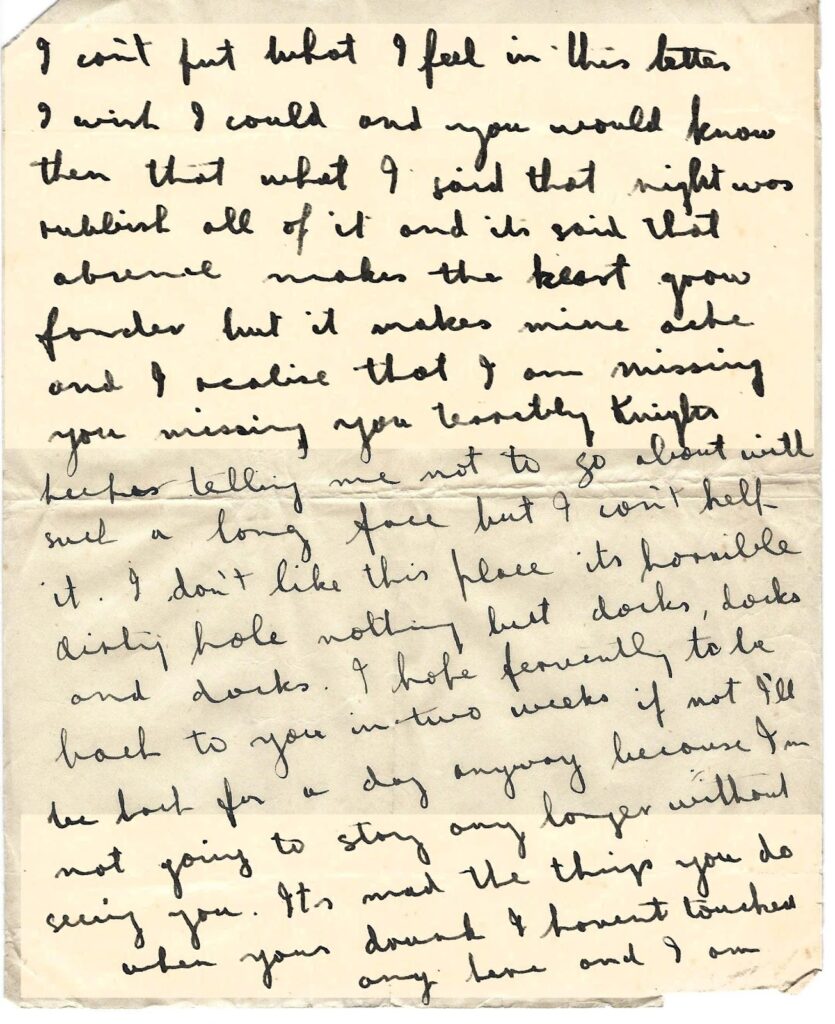 I can't put what I feel in this letter
I wish I could and you would know
then that what I said that night was
rubbish all of it and its said that
absence makes the heart grow
fonder but it makes mine ache
and I realise that I am missing
you missing you terribly Knight
keeps telling me not to go about with
such a long face but I can't help
it. I don't like this place its horrible
dirty hole nothing but docks, docks
and docks. I hope fervently to be
back to you in two weeks if not I'll
be back for a day anyway because I'm
not going to stay any longer without
seeing you. It's mad the things you do
when your drunk I havent touched
any here and I am